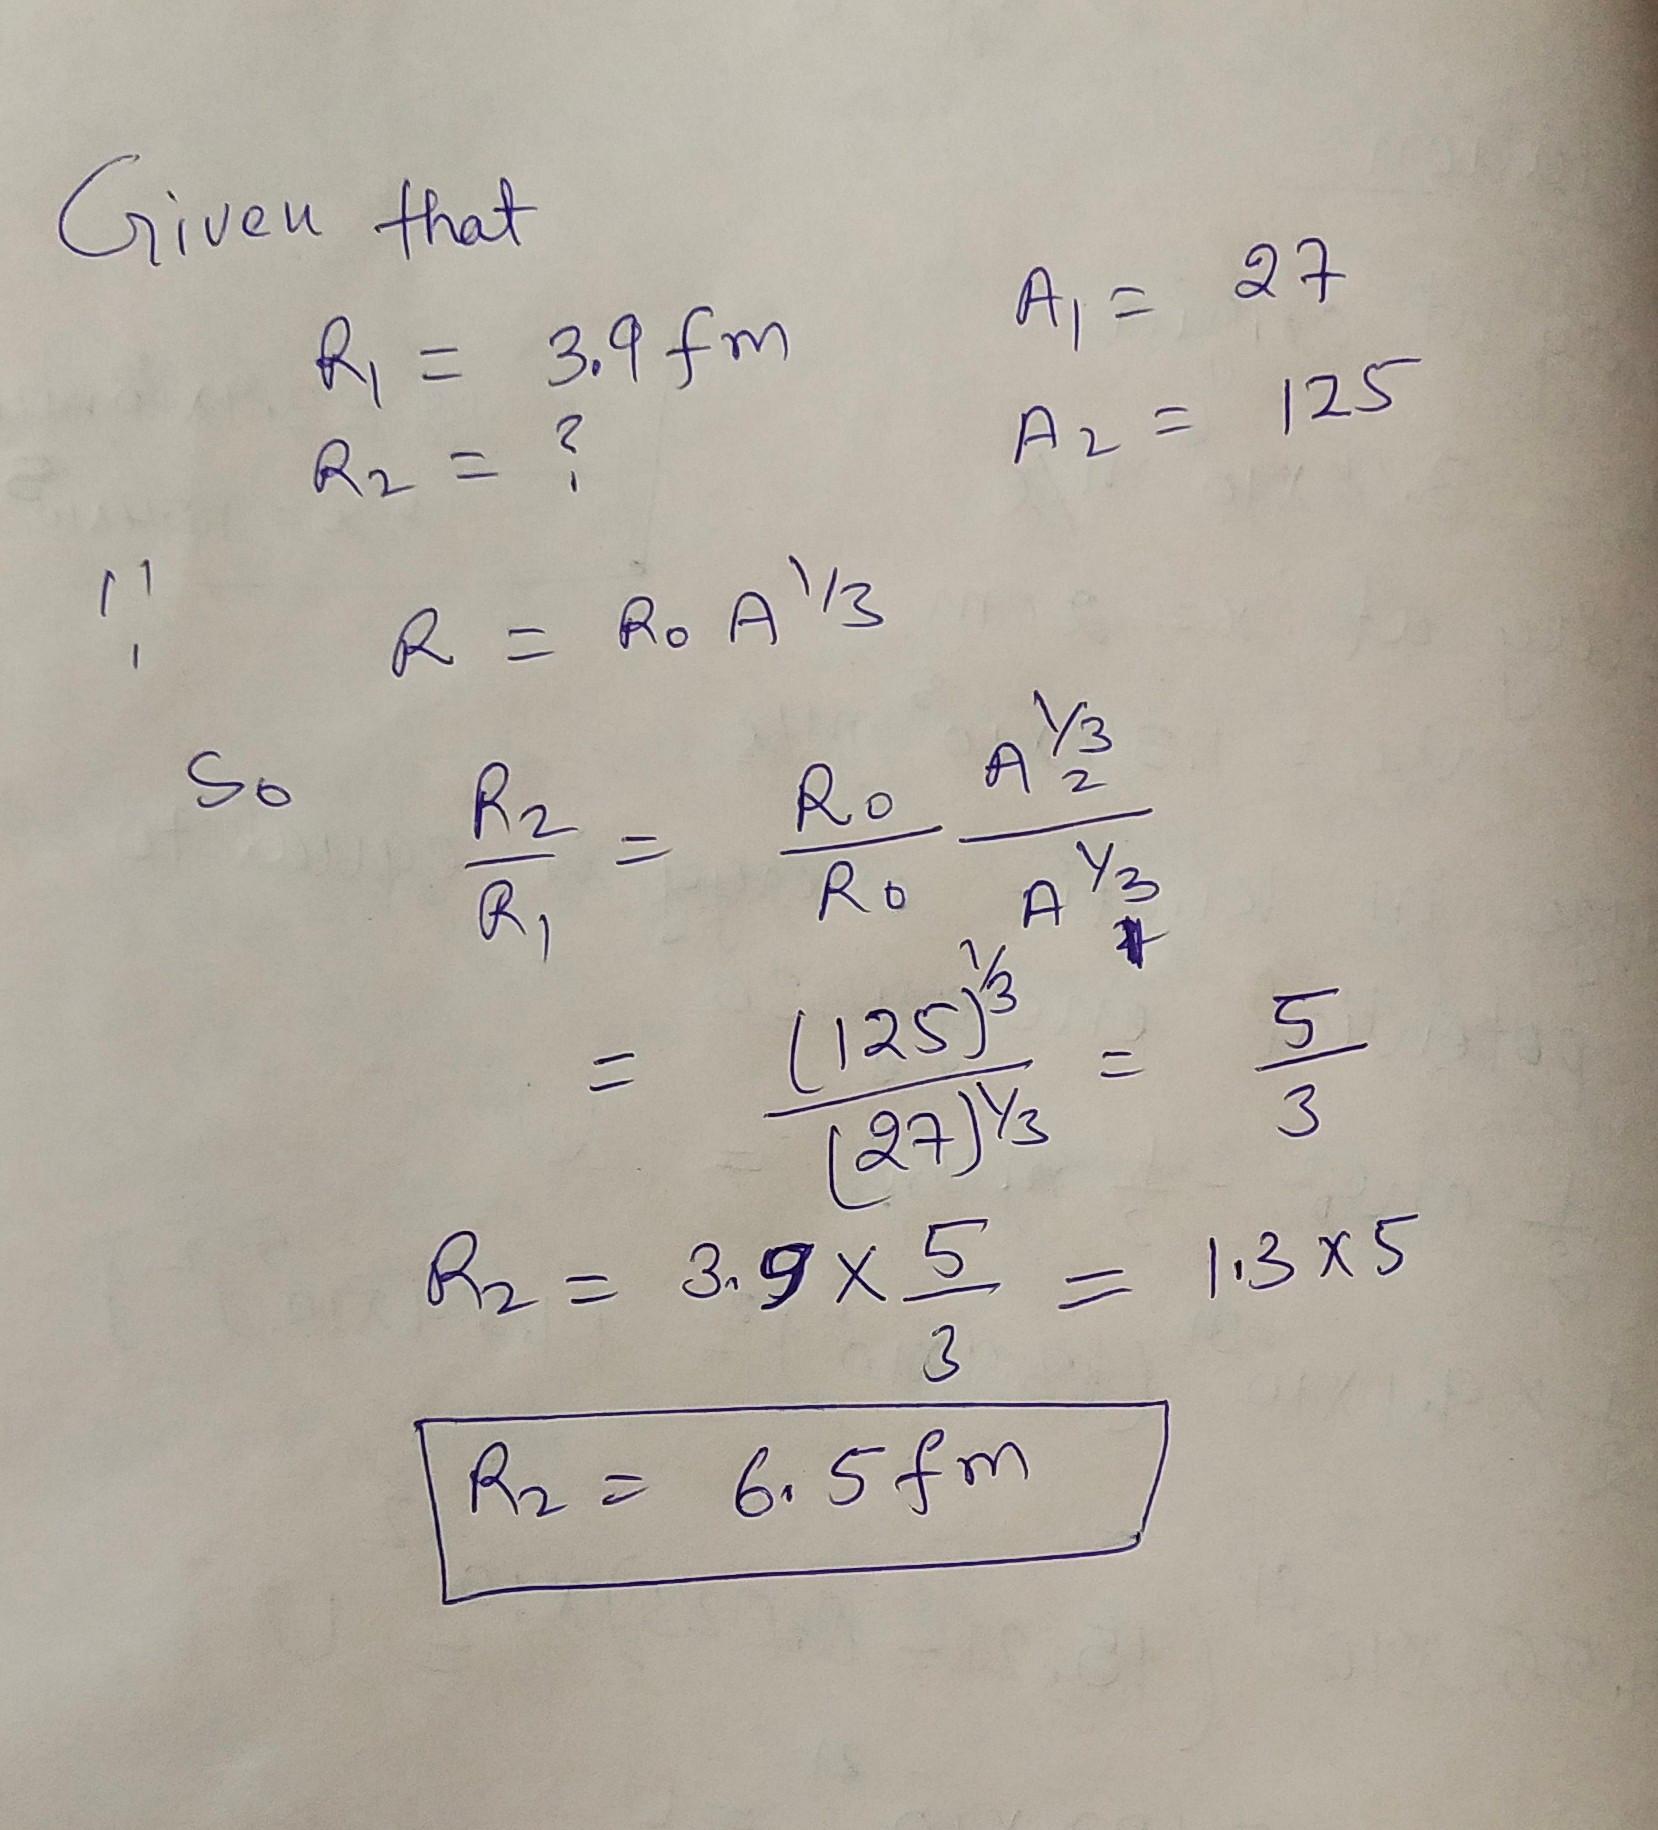 Given that
R₁ = 3.9 fm A₁ = 27
R₂ = ? A₂ = 125
∵ R = R₀ A^1/3
So R₂/R₁ = R₀/R₀ A₂^1/3/A₁^1/3
= (125)^1/3/(27)^1/3 = 5/3
R₂ = 3.9 × 5/3 = 1.3 × 5
R₂ = 6.5 fm